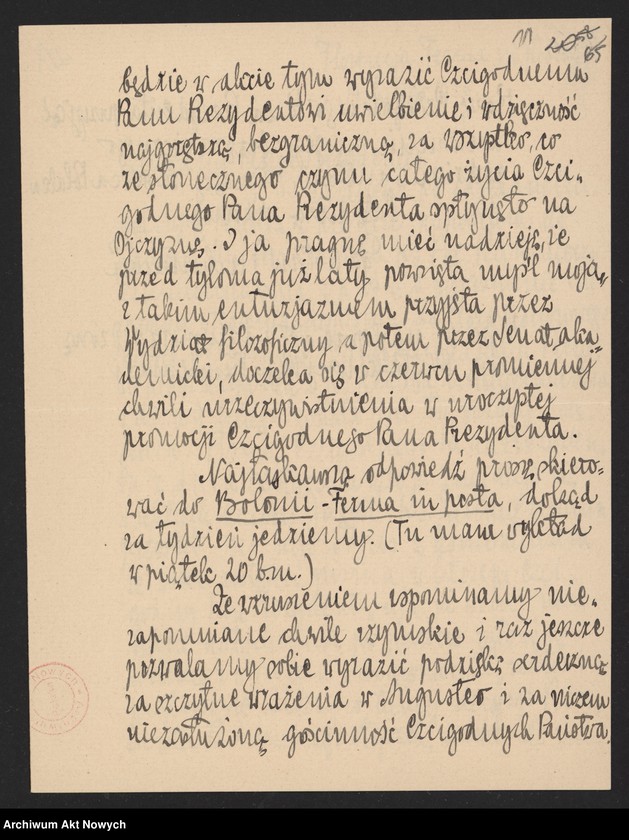 11 65
będzie w akcie tym wyrazić Czcigodnemu
Panu Prezydentowi uwielbienie i wdzięczność
najgorętszą, bezgraniczną, za wszystko, co
ze słonecznego czynu całego życia Czci-
godnego Pana Prezydenta spłynęło na
Ojczyznę. I ja pragnę mieć nadzieję, że
przed tyloma już laty powzięta myśl moja,
z takim entuzjazmem przyjęta przez
Wydział filozoficzny a potem przez Senat aka-
demicki, doczeka się w czerwcu promiennej
chwili urzeczywistnienia w uroczystej
promocji Czcigodnego Pana Prezydenta.
Najłaskawszą odpowiedź proszę skiero-
wać do Bolonii - Ferma in posta, dokąd
za tydzień jedziemy. (Tu mam wykład
w piątek 20 b.m.)
Ze wzruszeniem wspominamy nie-
zapomniane chwile rzymskie i raz jeszcze
pozwalamy sobie wyrazić podziękę serdeczną
za zaszczytne wrażenia w Augusteo i za niczem
niezasłużoną gościnność Czcigodnych Państwa.
Archiwum Akt Nowych